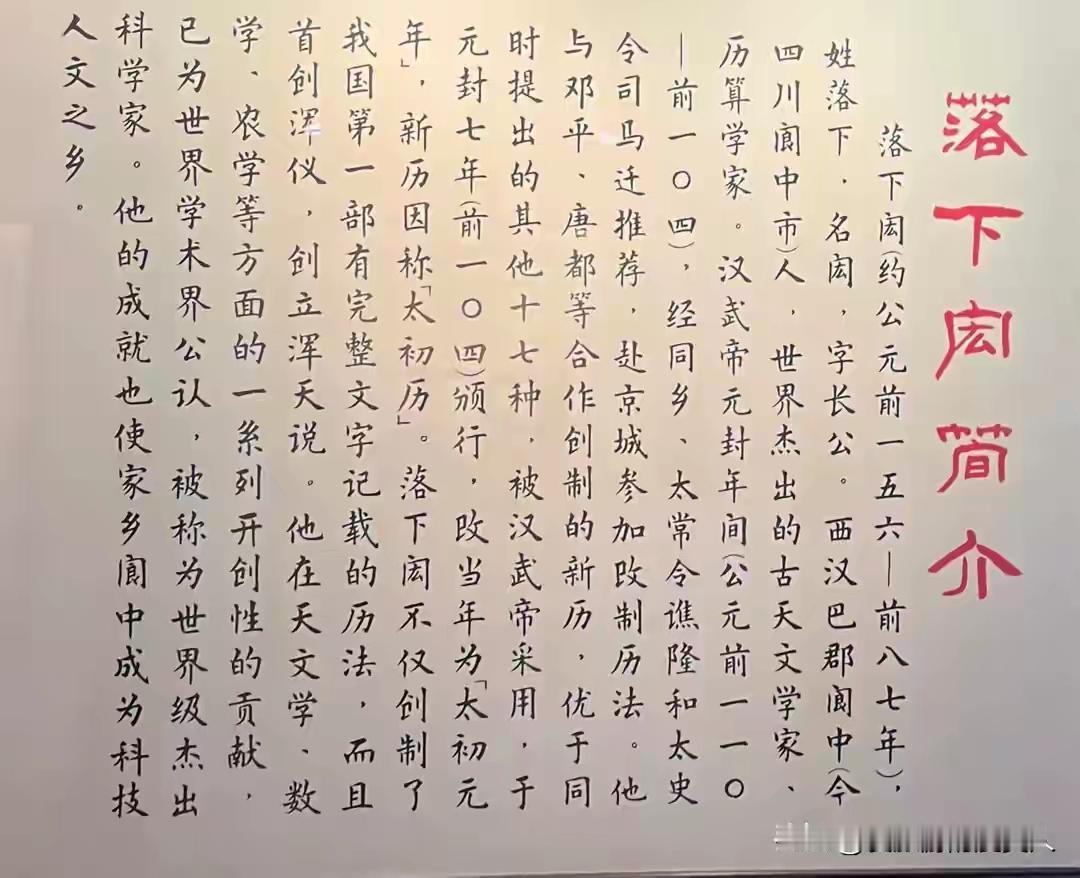 落下闳简介
落下闳(约公元前一五六—前八七年),
姓落下,名闳,字长公。西汉巴郡阆中(今
四川阆中市)人,世界杰出的古天文学家、
历算学家。汉武帝元封年间(公元前一一〇
—前一〇四),经同乡、太常令谯隆和太史
令司马迁推荐,赴京城参加改制历法。他
与邓平、唐都等合作创制的新历,优于同
时提出的其他十七种,被汉武帝采用,于
元封七年(前一〇四)颁行,改当年为「太初元
年」,新历因称「太初历」。落下闳不仅创制了
我国第一部有完整文字记载的历法,而且
首创浑仪,创立浑天说。他在天文学、数
学、农学等方面的一系列开创性的贡献,
已为世界学术界公认,被称为世界级杰出
科学家。他的成就也使家乡阆中成为科技
人文之乡。